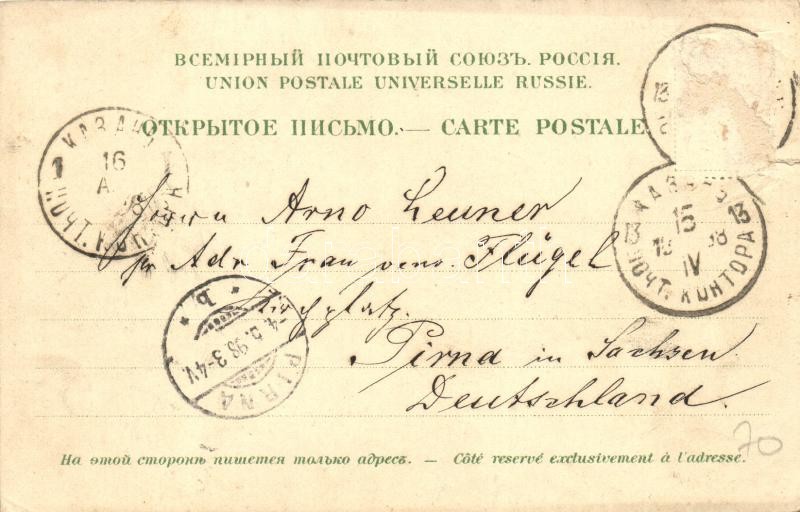 ВСЕМІРНЫЙ ПОЧТОВЫЙ СОЮЗЪ. РОССІЯ.
UNION POSTALE UNIVERSELLE RUSSIE.
ОТКРЫТОЕ ПИСЬМО. — CARTE POSTALE.
КАЗАНЬ
1
16
ПОЧТ. КОН
13
КАЗАН
15
13 13
18 98
IV
ПОЧТ. КОНТОРА
Herrn Arno Leuner
pr Adr Frau verw. Flügel
Kirchplatz.
Pirna in Sachsen.
Deutschland.
* b *
-4.5.98.3-4V.
PIRNA
70
На этой сторонѣ пишется только адресъ. — Côté reservé exclusivement à l'adresse.